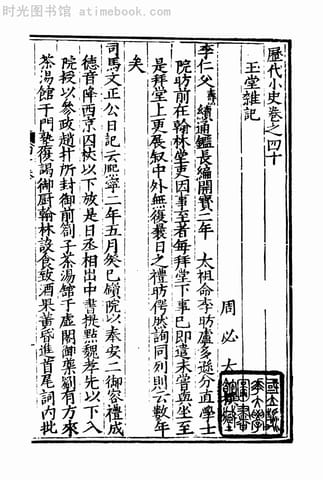 时光图书馆 atimebook.com
歷代小史卷之四十
玉堂雜記
周必大
李仁父燾續通鑑長編開寶二年 太祖命李昉盧多遜分直學士
院昉前在翰林堂吏因事至者每拜堂下事已即遣未嘗與坐至
是拜堂上更展叙中外無復曩日之禮昉愕然詢同列則云數年
矣
司馬文正公日記云熙寧二年五月癸巳鎖院以奉安二御容禮成
德音降西京囚杖以下放是日丞相出中書提點魏孝先以下入
院授以參政趙抃所封御前劄子茶湯館于虛閣御藥劉有方來
茶湯館于門塾復謁御厨翰林設食致酒果黃昏進首尾詞內批